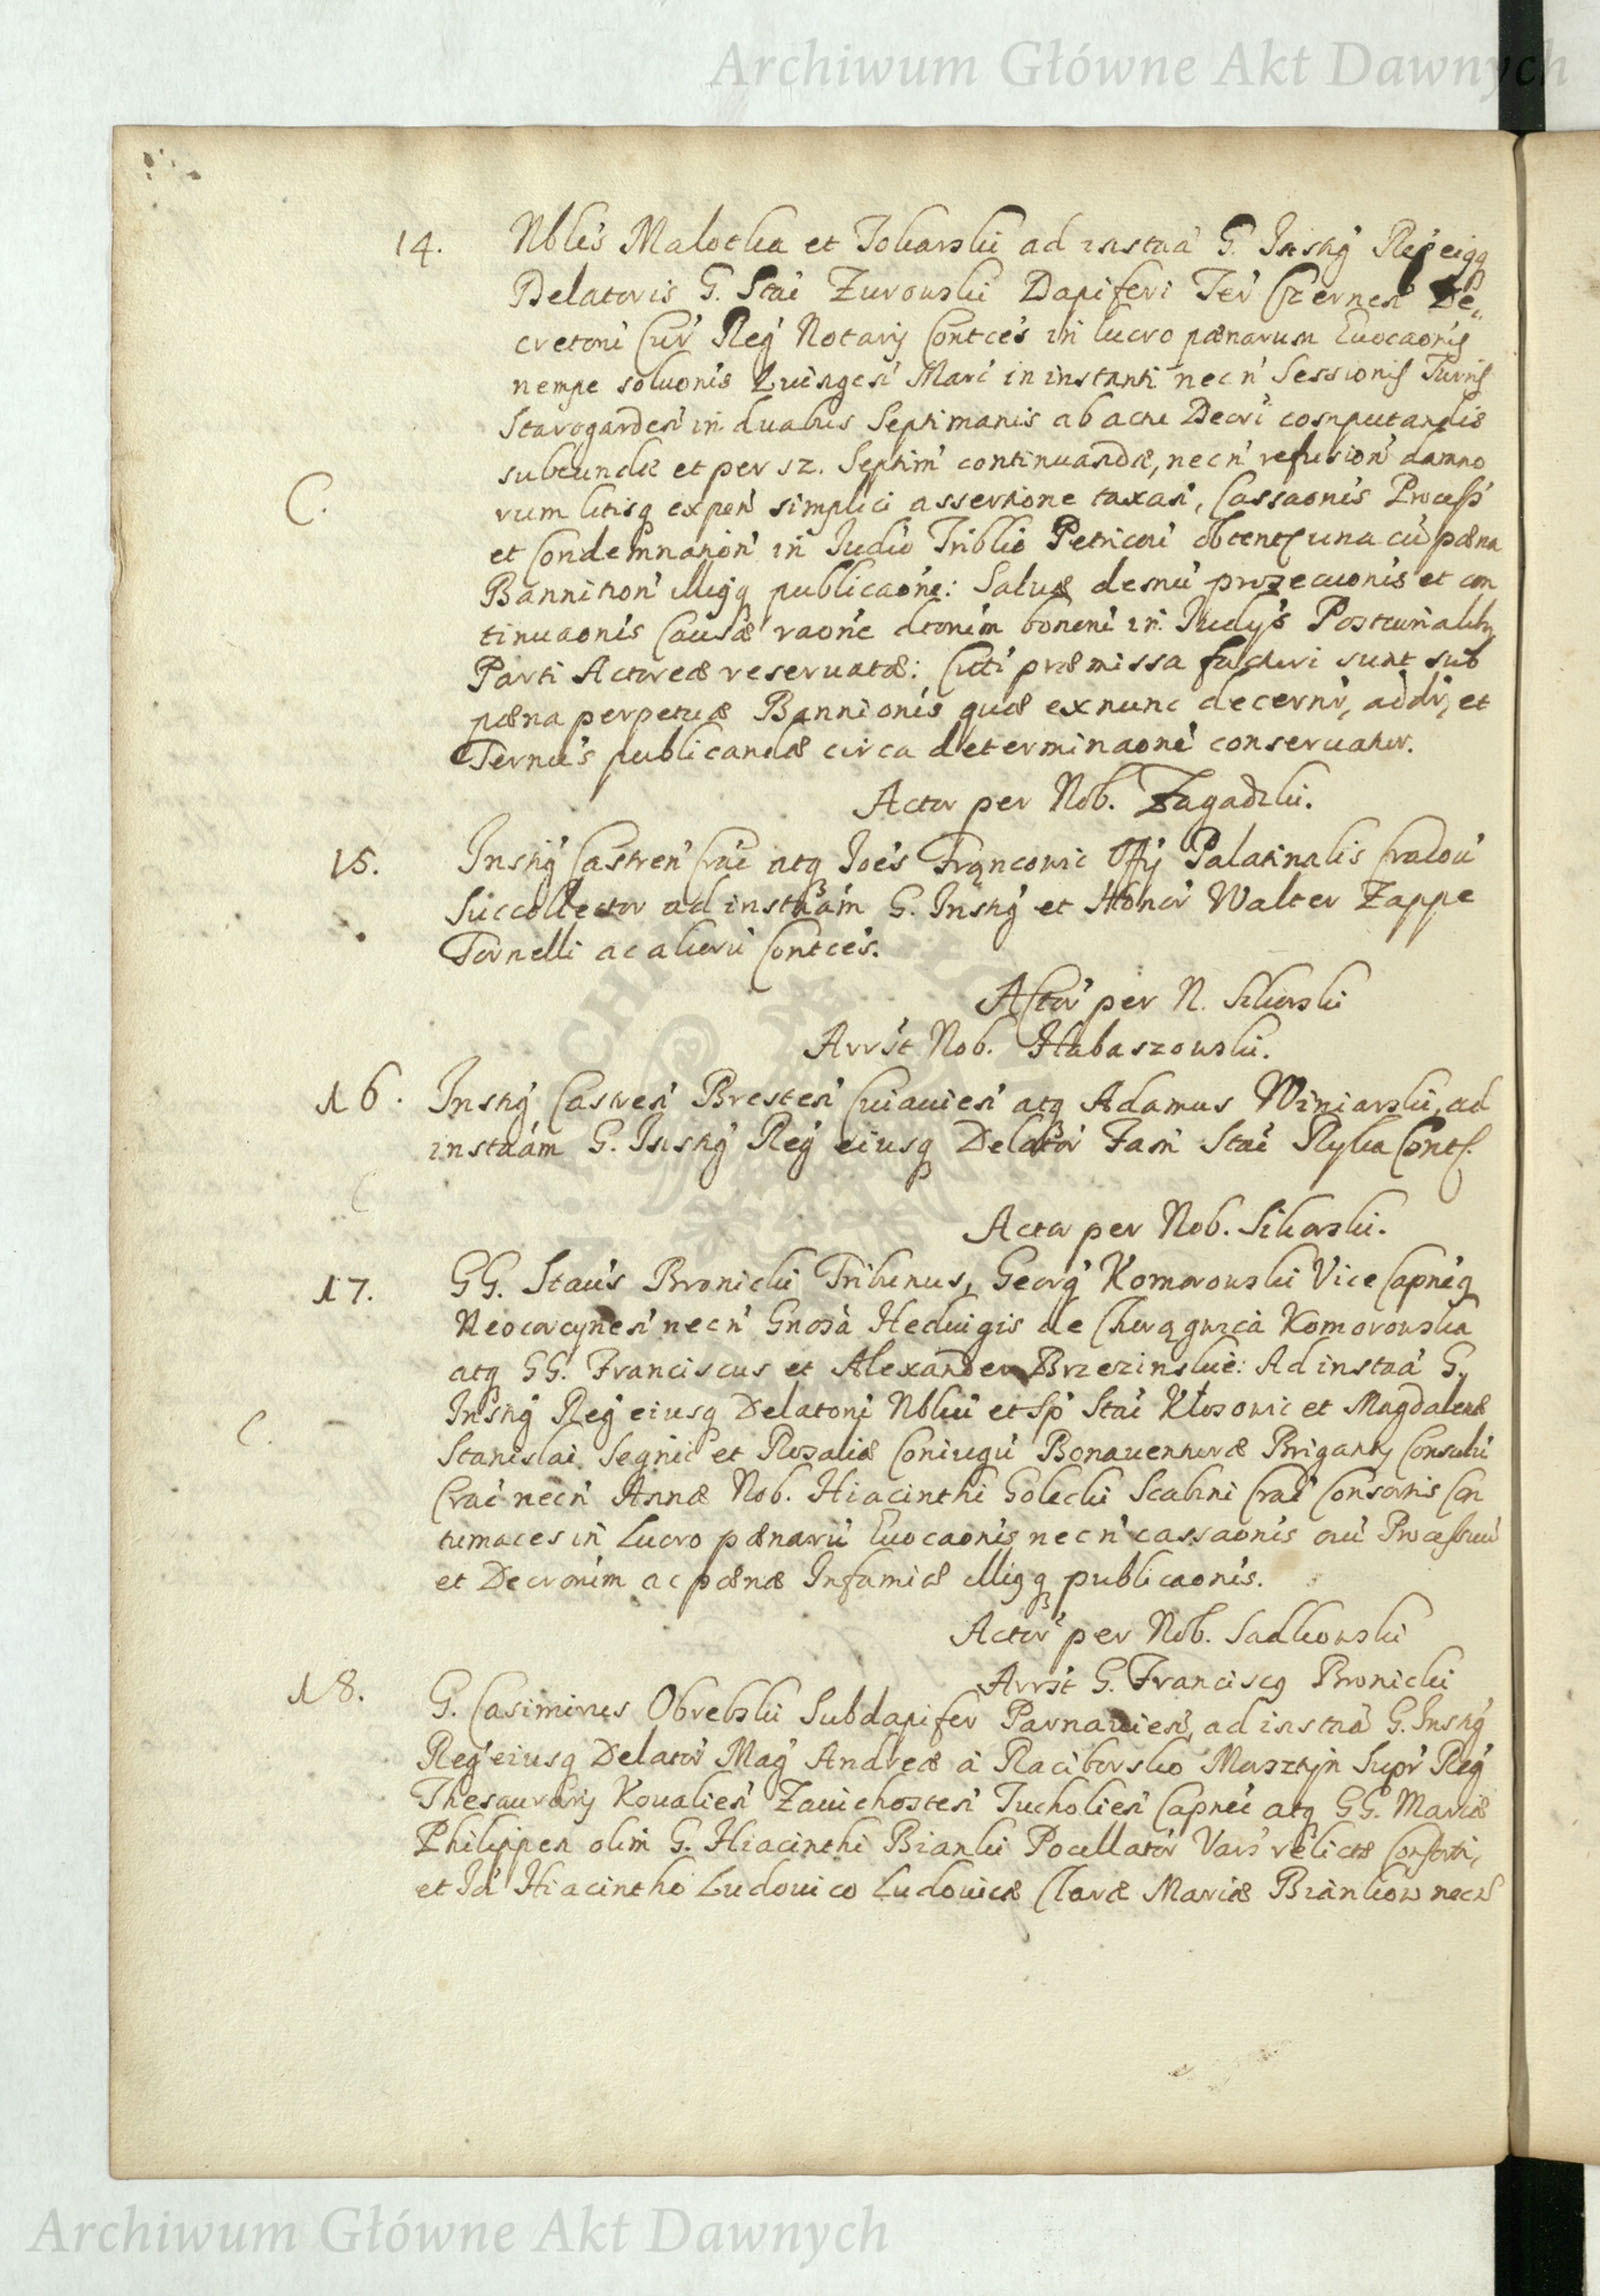 Archiwum Główne Akt Dawnych
14. Nbles Malotka et Tokarski ad instná G. Instig Reg eiqq
Delatoris G. Stai Zurowski Dapiferi Ter Czernen De
cretoni Cur Reg Notarij Contces in lucro pænarum Euocaonis
nempe soluonis Quingen Marc in instanti necn Sessionis Turris
Starogarden in duabus Septimanis ab actu Decri computandis
subeundæ et per 12. Septim continuandæ, necn refusion damno
C. rum litisq expen simplici assertione taxan, Cassaonis Process
et Condemnation in Judio Triblio Petricoui obtent una cū pæna
Bannition illiqq publicaone: Saluæ demū prosecuonis et con
tinuaonis Causæ raone dtonim bonom in Judijs Postcurialib
Parti Actoreæ reseruatæ: Cuti præmissa facturi sunt sub
pæna perpetuæ Bannionis quæ exnunc decernr, addr, et
Ternis publicandæ circa determinaone conseruatur.
Actor per Nob. Zagadzki.
15. Instig Castren Crac atq Joes Francowic Offij Palatinalis Cracou
Succollector ad instnám G. Instig et Honor Walter Zappe
Tornelli ac alioru Contces.
Actor per N. Sikorski
Arrst Nob. Habaszowski.
16. Instig Castren Bresten Cuiauien atq Adamus Winiarski, ad
instnám G. Instig Reg eiusq Delator Fam Stai Rylka Contt.
Actor per Nob. Sikorski.
17. GG. Staus Bronicki Tribunus, Georg Komorowski Vice Capneq
Neocorcynen necn Gnosa Heduigis de Komorowska
atq GG. Franciscus et Alexander Brzezinskie: Ad instná G.
Instig Reg eiusq Delatoni Nbliu et Sp Stai Kłosowic et Magdalenæ
C. Stanislai Segnic et Rosaliæ Coniugū Bonauenturæ Briganty Consulū
Crac necn Annæ Nob. Hiacinthi Golecki Scabini Crac Consortis Con
tumaces in Lucro pænarū Euocaonis necn cassaonis oiū Processuū
et Decronim ac pænæ Infamiæ illiqq publicaonis.
Actor per Nob. Sadkowski
Arrst G. Franciscq Bronicki
18. G. Casimirus Obrebski Subdapifer Parnauien, ad instná G. Instig
Reg eiusq Delator Mag Andreæ à Raciborsko Morsztyn Supr Reg
Thesaurarij Koualien Zauichosten Tucholien Capnei atq GG. Mariæ
Philippen olim G. Hiacinthi Bianki Pocillator Vars relictæ Consorti,
et Id Hiacintho Ludouico Ludouicæ Claræ Mariæ Biankow necn
Archiwum Główne Akt Dawnych